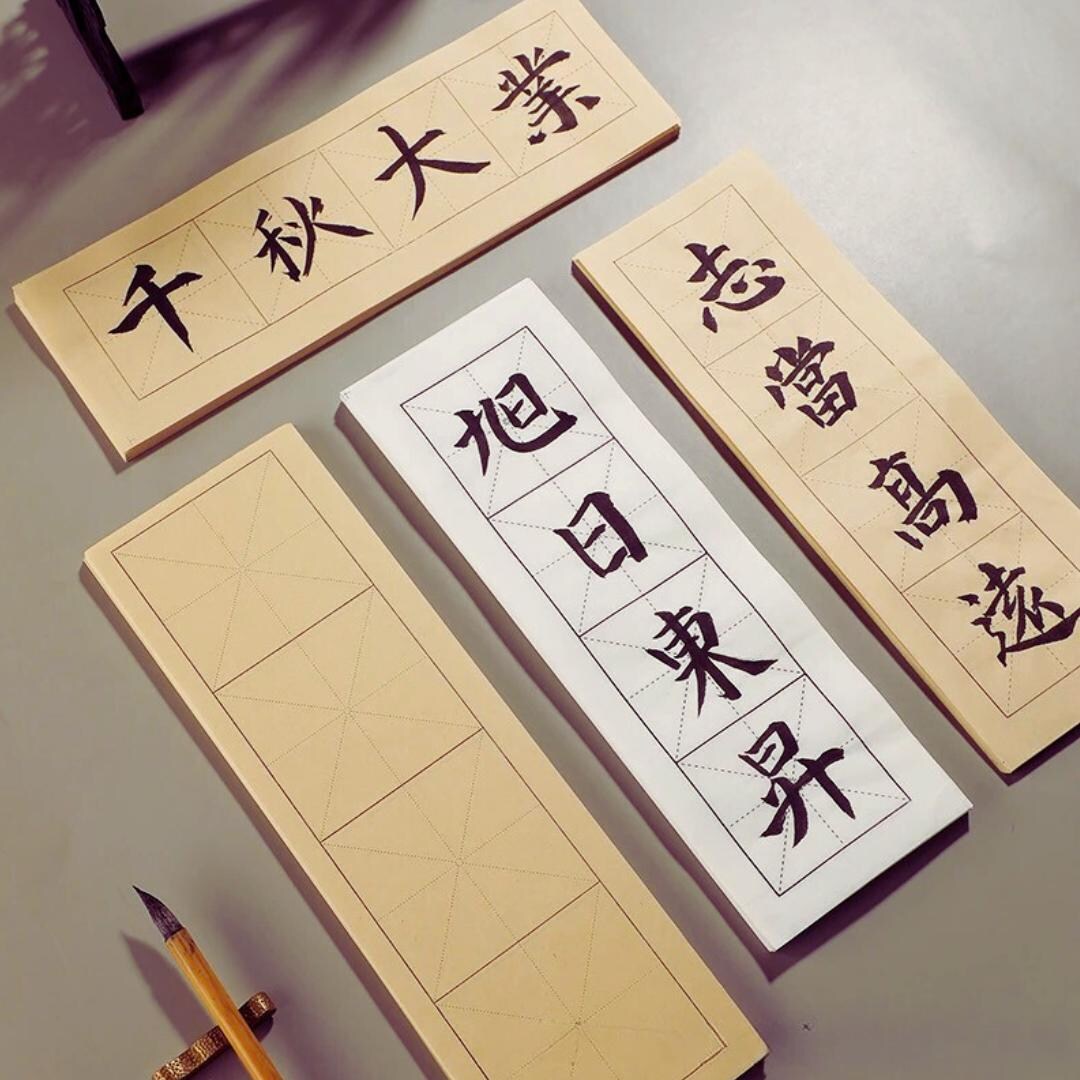 千秋大業
旭日東昇
志當高遠